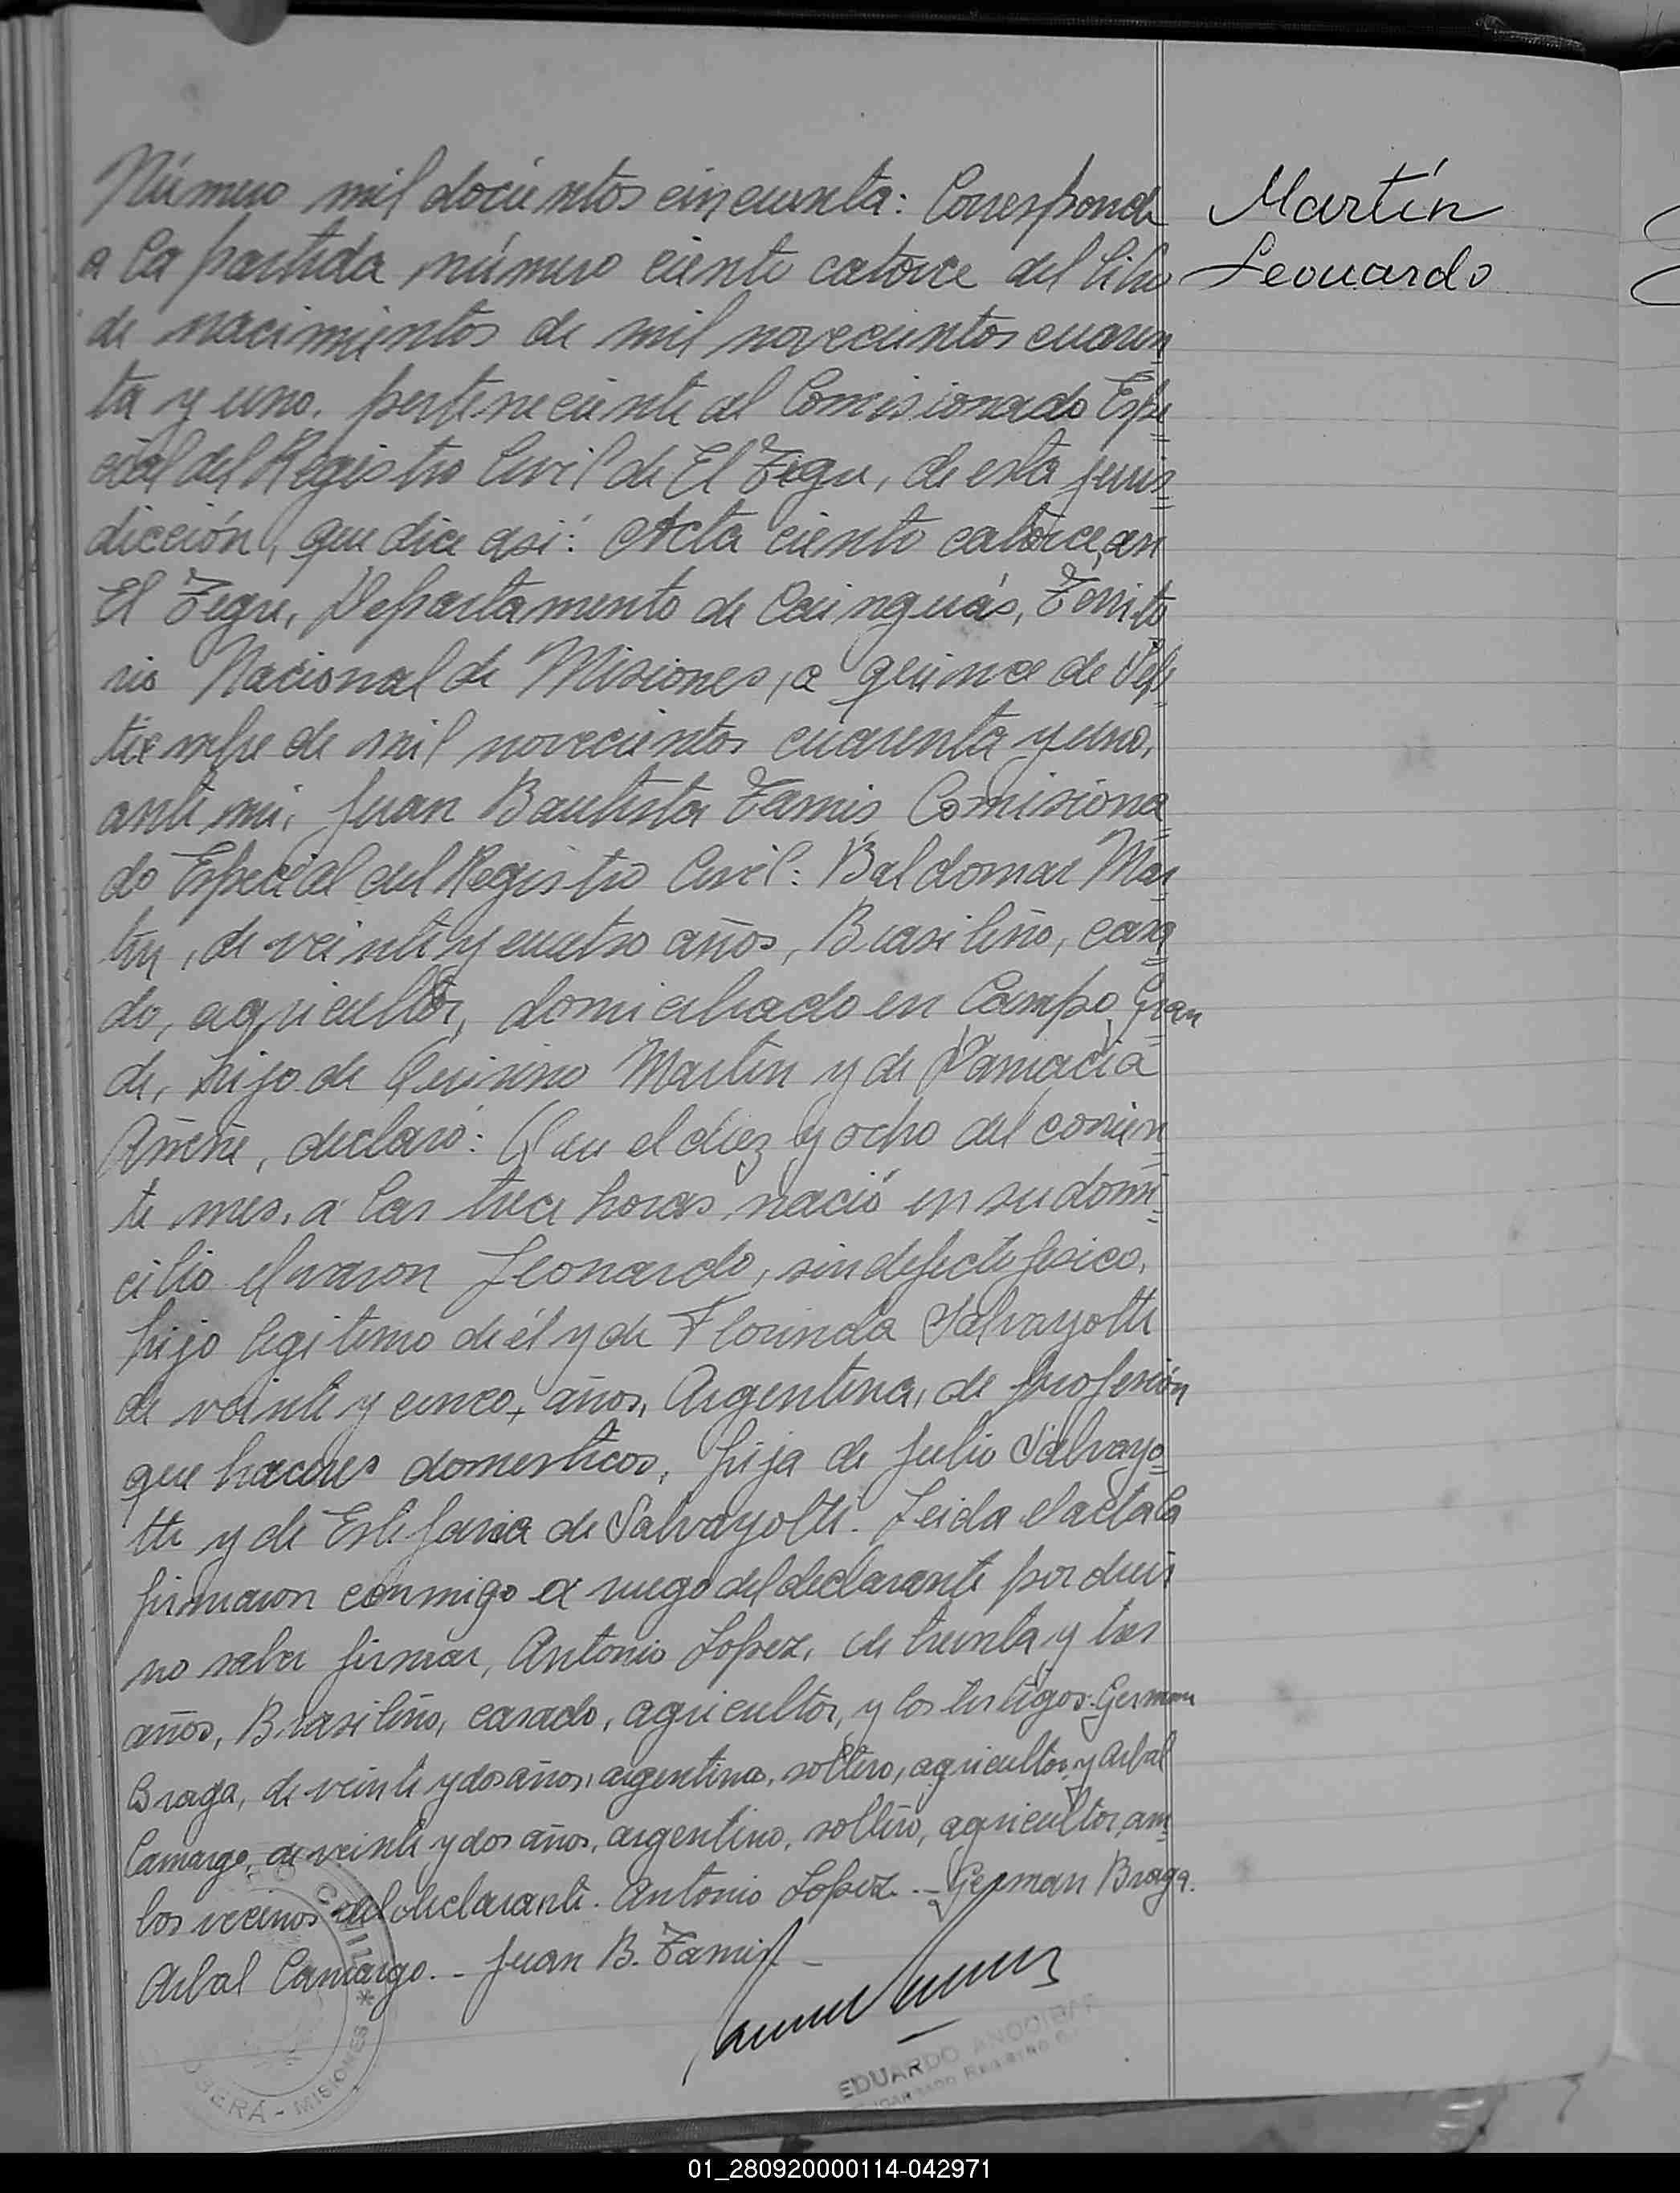 Número mil docientos cincuenta: Corresponde
a la partida número ciento catorce del libro
de nacimientos de mil novecientos cuaren
ta y uno. perteneciente al Comisionado Espe
cial del Registro Civil de El Tegu, de esta juris
dicción, que dice asi: Acta ciento catorce, en
El Tegu, Departamento de Cainguás, Territo
rio Nacional de Misiones, a quince de Sep
tiembre de mil novecientos cuarenta y uno,
ante mi, Juan Bautista Tamis, Comisiona
do Especial del Registro Civil: Baldomar Mar
tin, de veinte y cuatro años, Brasileño, casa
do, agricultor, domiciliado en Campo Gran
de, hijo de Quirino Martin y de
declaró: Que el diez y ocho del corrien
te mes, a las trece horas, nació en su domi
cilio el varon Leonardo, sin defecto fisico,
hijo legitimo de él y de Florinda Salvayotti
de veinte y cinco, años, Argentina, de profesión
que haceres domesticos, hija de Julio Salvayo
tti y de Estefania de Salvayotti. Leida el acta la
firmaron conmigo a ruego del declarante por decir
no saber firmar, Antonio Lopez, de treinta y tres
años, Brasileño, casado, agricultor, y los testigos: German
Braga, de veinte y dos años, argentino, soltero, agricultor y
Camargo, de veinte y dos años, argentino, soltero, agricultor, am
bos vecinos del declarante. Antonio Lopez. - German Braga.
Camargo. - Juan B. Tamis -
Martín
Leonardo
CIVIL *
OBERÁ - MISIONES
EDUARDO
01_280920000114-042971